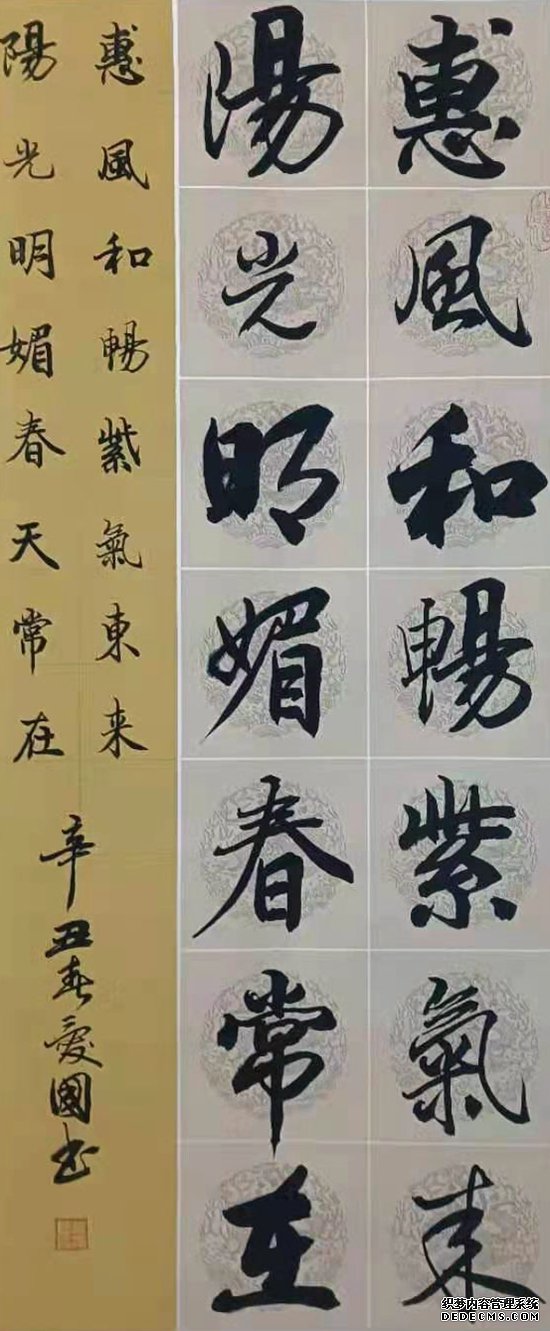 惠風和暢紫氣来
陽光明媚春常在
惠風和暢紫氣東来
陽光明媚春天常在
辛丑春愛國书
织梦内容管理系统
DEDECMS.COM